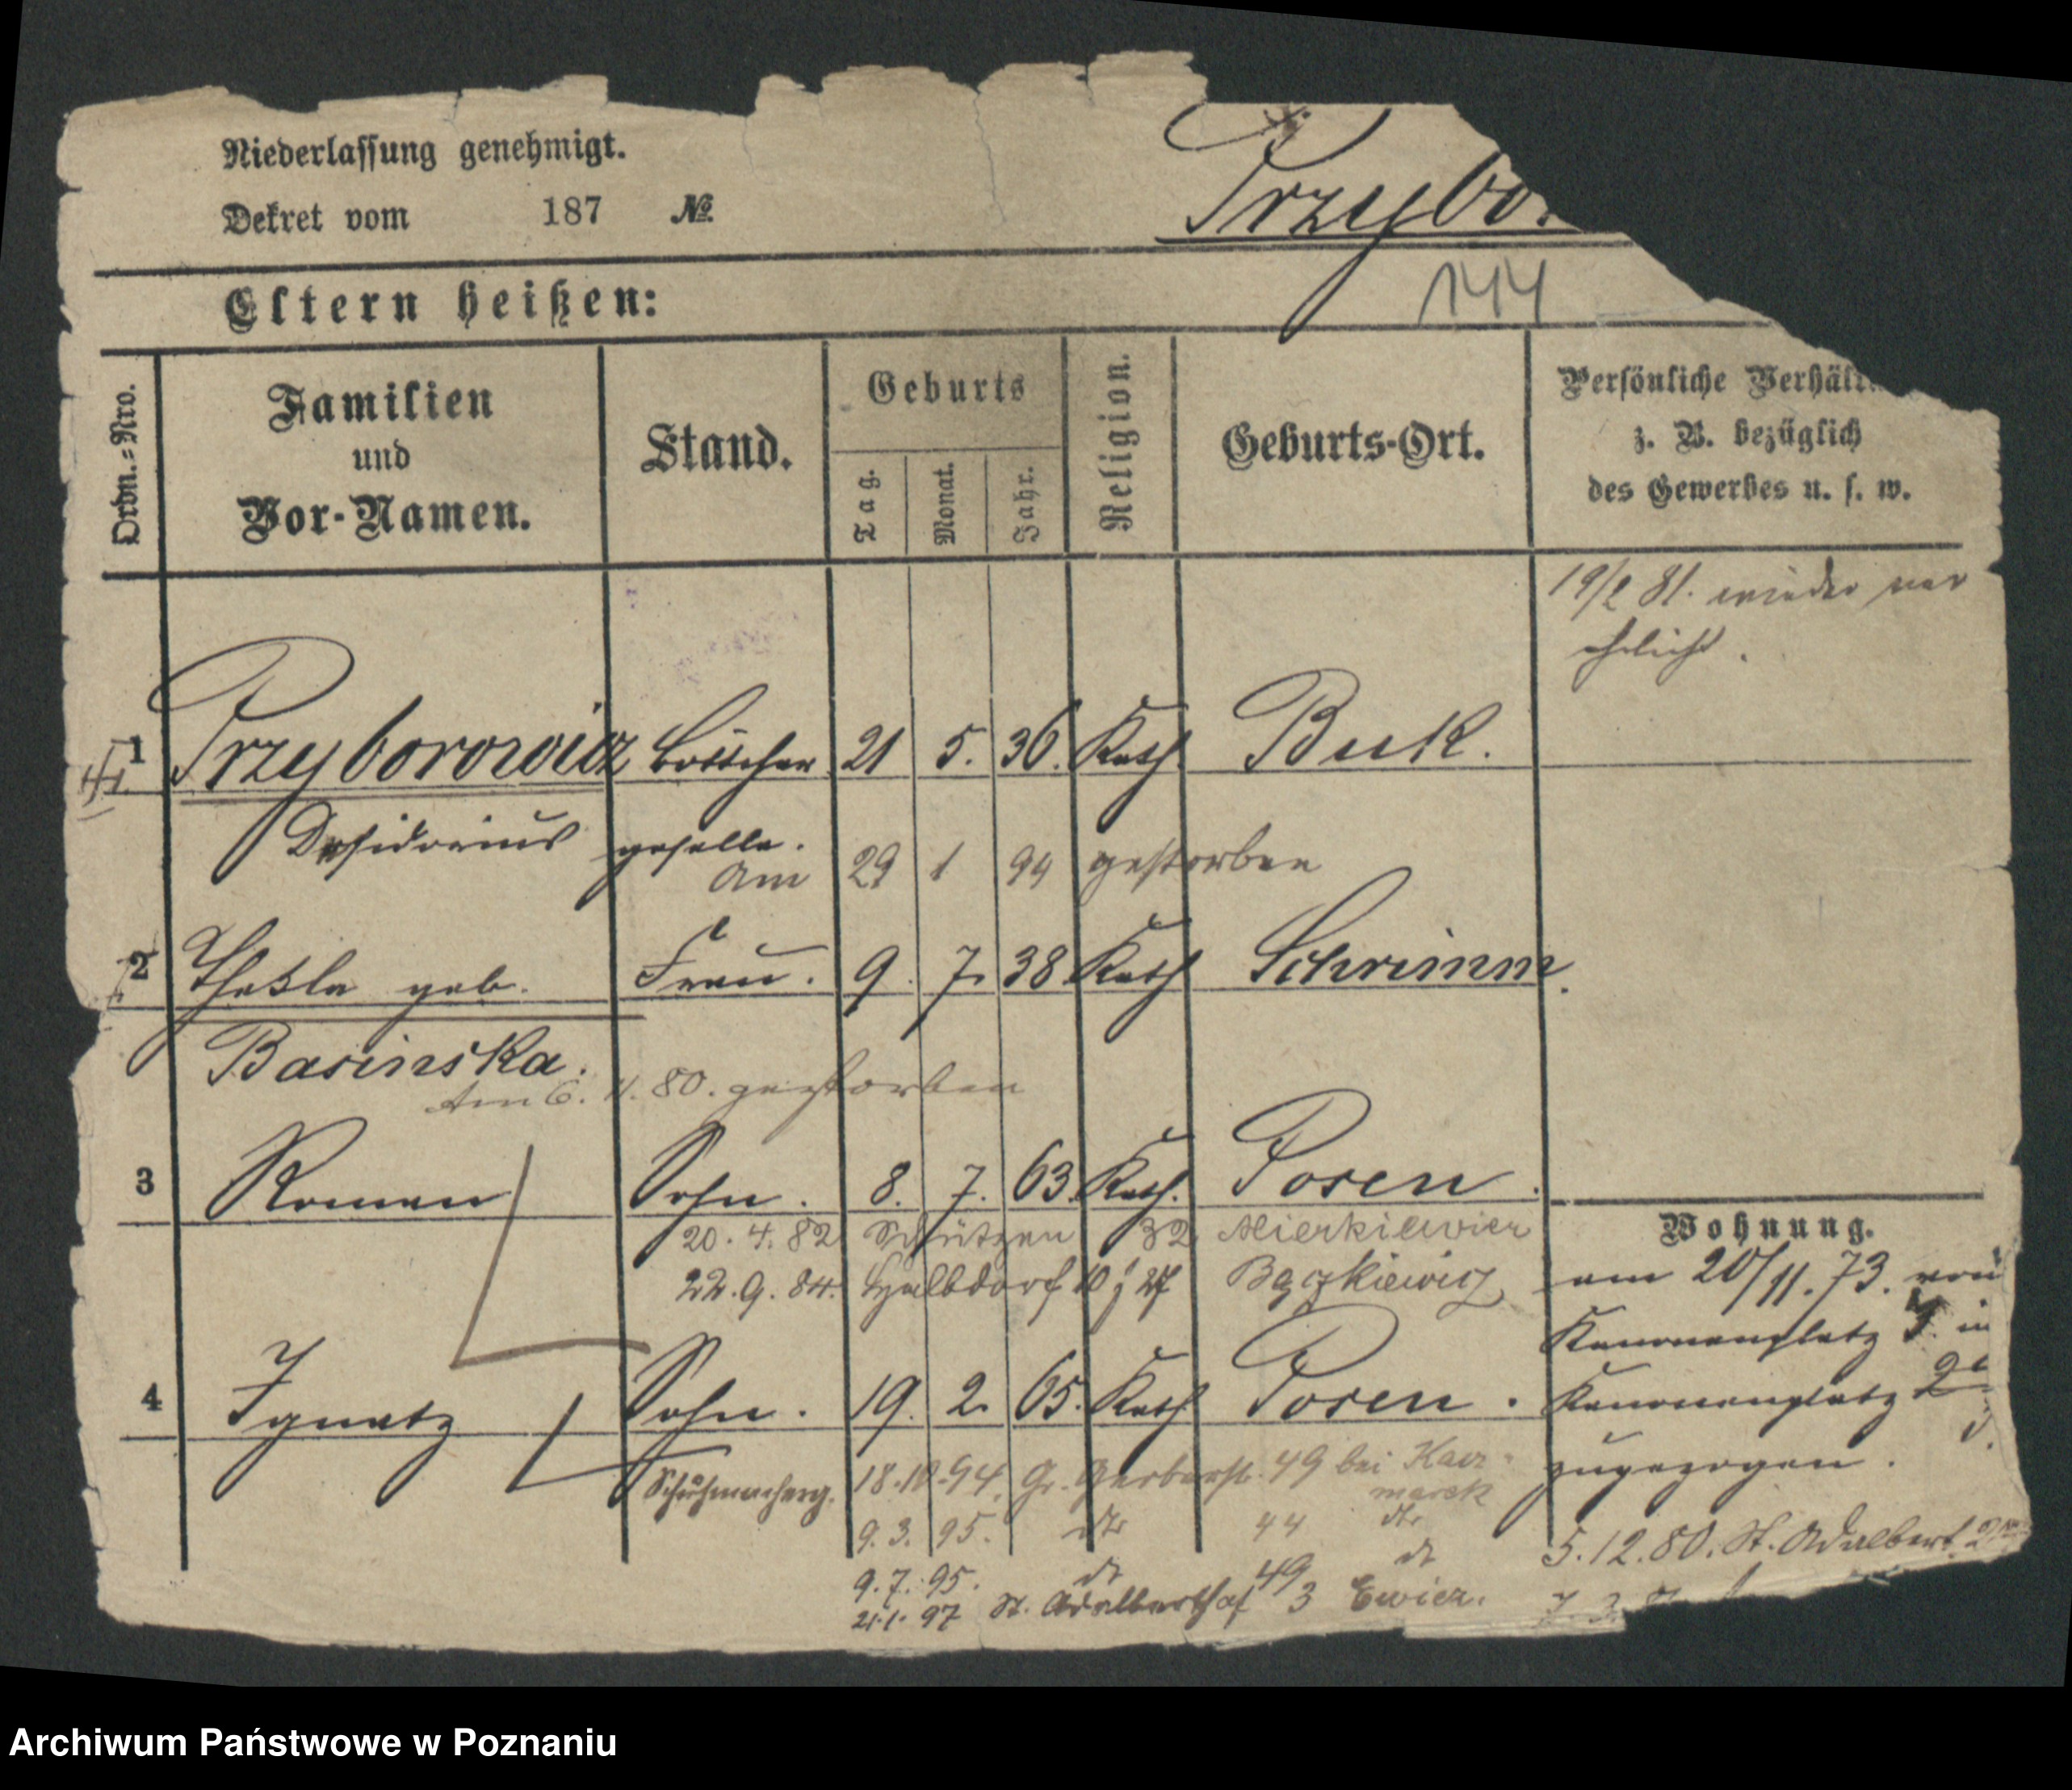 Niederlassung genehmigt.
Dekret vom 187 №
Przybo
144
Eltern heißen:
Ordn.=Nro.
Familien und Vor-Namen.
Stand.
Geburts
Tag.
Monat.
Jahr.
Religion.
Geburts-Ort.
Persönliche Verhält
z. B. bezüglich
des Gewerbes u. s. w.
19/2 81. wieder ver
ehelicht.
1 Przyborowicz Böttcher 21 5. 36. Kath. Buk.
Desiderius geselle.
Am 29 1 94 gestorben
2 Thekla geb. Frau. 9. 7. 38 Kath Schrimm.
Basinska.
Am 6. 11. 80. gestorben
3 Roman Sohn. 8. 7. 63. Kath. Posen.
20. 4. 82 Schützen 32 Mierkiewicz
22. 9. 84. Halbdorf 10 j 27 Bączkiewicz
4 Ignatz Sohn. 19. 2. 65. Kath Posen.
Schuhmacherg. 18.10.94. Gr. Gerberst. 49 bei Kacz-
marek
9. 3. 95. dto 44 dto
9. 7. 95. dt 49 dt
21.1. 97 St. Adalberthof 3 Ewicz.
Wohnung.
am 20/11. 73. von
Kanonenplatz in
Kanonenplatz
zugezogen.
5.12.80. St. Adalbert